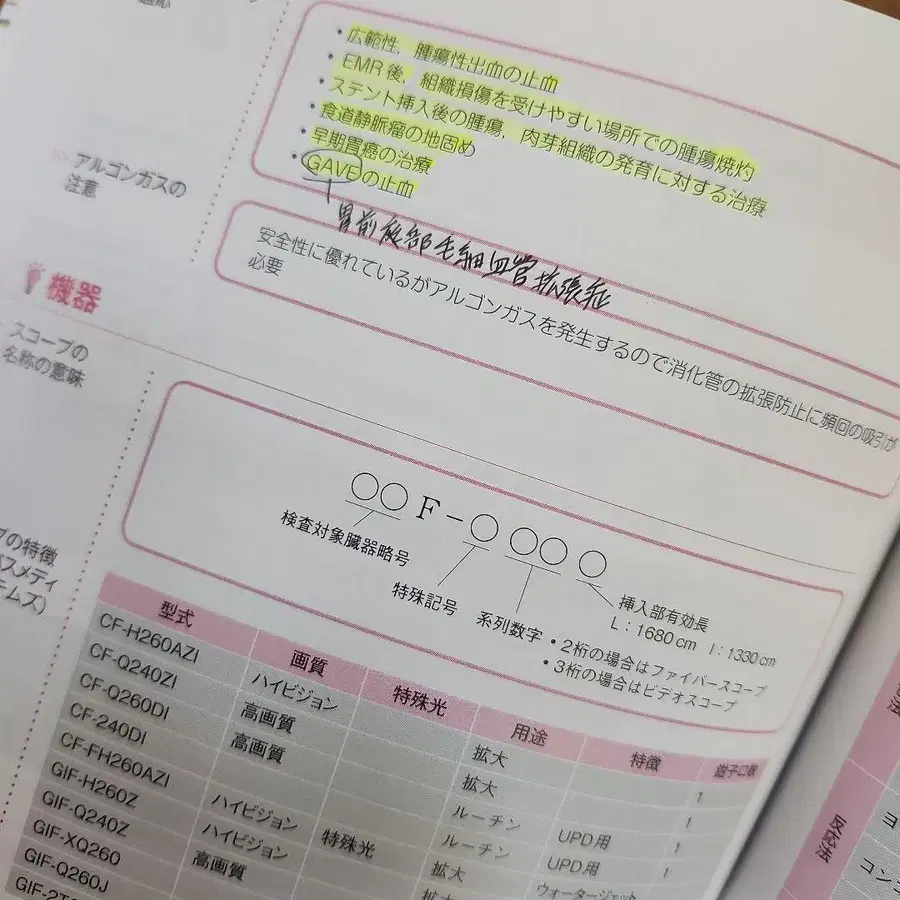 ・広範性，腫瘍性出血の止血
・EMR後，組織損傷を受けやすい場所での腫瘍焼灼
・ステント挿入後の腫瘍，肉芽組織の発育に対する治療
・食道静脈瘤の地固め
・早期胃癌の治療
・GAVEの止血
胃前庭部毛細血管拡張症
アルゴンガスの
注意
安全性に優れているがアルゴンガスを発生するので消化管の拡張防止に頻回の吸引が
必要
機器
スコープの
名称の意味
○○F−○○○○
検査対象臓器略号
特殊記号
系列数字
挿入部有効長
L：1680cm I：1330cm
・2桁の場合はファイバースコープ
・3桁の場合はビデオスコープ
の特徴
スメディ
テムズ）
型式 画質 特殊光 用途 特徴 鉗子口数
CF-H260AZI ハイビジョン 拡大 1
CF-Q240ZI 高画質 拡大 1
CF-Q260DI 高画質 ルーチン UPD用 1
CF-240DI ルーチン UPD用 1
CF-FH260AZI ハイビジョン 特殊光 拡大
GIF-H260Z ハイビジョン ウォータージェット
GIF-Q240Z 高画質
GIF-XQ260
GIF-Q260J